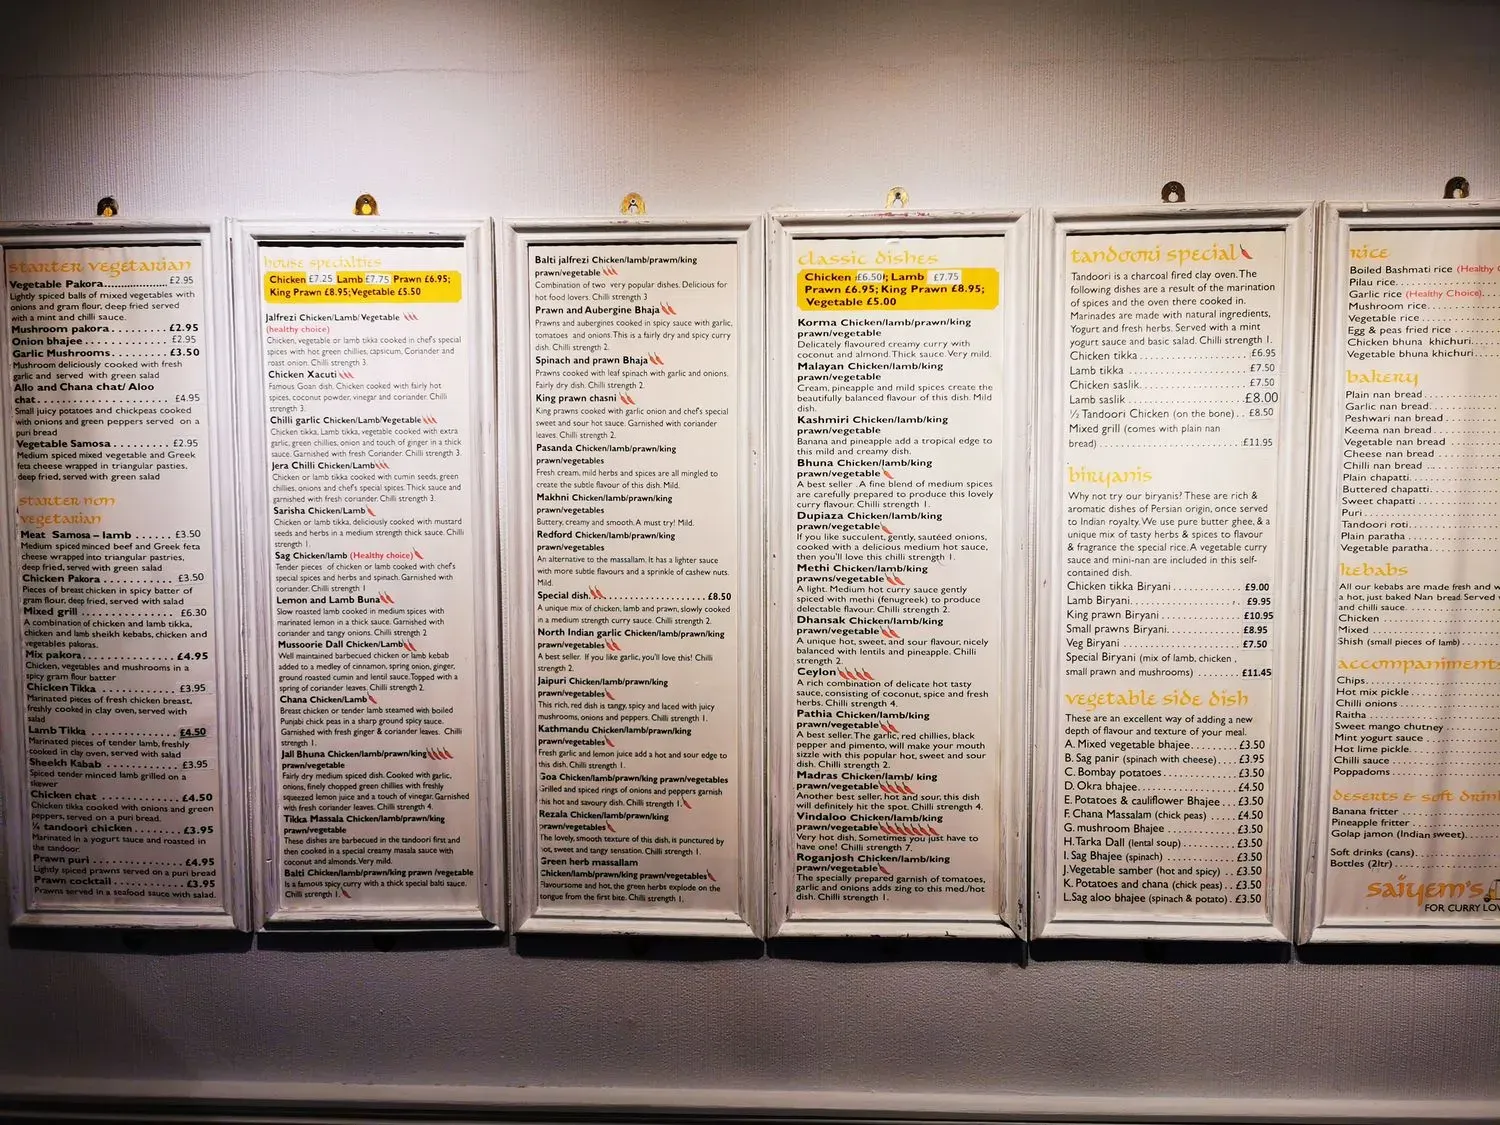 starter vegetarian
Vegetable Pakora......................£2.95
Lightly spiced balls of mixed vegetables with
onions and gram flour, deep fried served
with a mint and chilli sauce.
Mushroom pakora . . . . . . . . . £2.95
Onion bhajee . . . . . . . . . . . . £2.95
Garlic Mushrooms. . . . . . . . . £3.50
Mushroom deliciously cooked with fresh
garlic and served with green salad
Allo and Chana chat/ Aloo
chat. . . . . . . . . . . . . . . . . . . £4.95
Small juicy potatoes and chickpeas cooked
with onions and green peppers served on a
puri bread
Vegetable Samosa . . . . . . . . £2.95
Medium spiced mixed vegetable and Greek
feta cheese wrapped in triangular pasties,
deep fried, served with green salad
starter non
vegetarian
Meat Samosa – lamb . . . . . . £3.50
Medium spiced minced beef and Greek feta
cheese wrapped into triangular pastries,
deep fried, served with green salad
Chicken Pakora . . . . . . . . . . £3.50
Pieces of breast chicken in spicy batter of
gram flour, deep fried, served with salad
Mixed grill . . . . . . . . . . . . . £6.30
A combination of chicken and lamb tikka,
chicken and lamb sheikh kebabs, chicken and
vegetables pakoras.
Mix pakora. . . . . . . . . . . . . £4.95
Chicken, vegetables and mushrooms in a
spicy gram flour batter
Chicken Tikka . . . . . . . . . . . £3.95
Marinated pieces of fresh chicken breast,
freshly cooked in clay oven, served with
salad
Lamb Tikka . . . . . . . . . . . . £4.50
Marinated pieces of tender lamb, freshly
cooked in clay oven, served with salad
Sheekh Kabab . . . . . . . . . . . £3.95
Spiced tender minced lamb grilled on a
skewer
Chicken chat . . . . . . . . . . . £4.50
Chicken tikka cooked with onions and green
peppers, served on a puri bread.
¼ tandoori chicken . . . . . . . . £3.95
Marinated in a yogurt sauce and roasted in
the tandoor.
Prawn puri . . . . . . . . . . . . . £4.95
Lightly spiced prawns served on a puri bread
Prawn cocktail . . . . . . . . . . . £3.95
Prawns served in a seafood sauce with salad.
house specialties
Chicken £7.25 Lamb £7.75 Prawn £6.95;
King Prawn £8.95;Vegetable £5.50
Jalfrezi Chicken/Lamb/Vegetable
(healthy choice)
Chicken, vegetable or lamb tikka cooked in chef's special
spices with hot green chillies, capsicum, Coriander and
roast onion. Chilli strength 3.
Chicken Xacuti
Famous Goan dish. Chicken cooked with fairly hot
spices, coconut powder, vinegar and coriander. Chilli
strength 3.
Chilli garlic Chicken/Lamb/Vegetable
Chicken tikka, Lamb tikka, vegetable cooked with extra
garlic, green chillies, onion and touch of ginger in a thick
sauce. Garnished with fresh Coriander. Chilli strength 3.
Jera Chilli Chicken/Lamb
Chicken or lamb tikka cooked with cumin seeds, green
chillies, onions and chefs special spices. Thick sauce and
garnished with fresh coriander. Chilli strength 3.
Sarisha Chicken/Lamb
Chicken or lamb tikka, deliciously cooked with mustard
seeds and herbs in a medium strength thick sauce. Chilli
strength 1.
Sag Chicken/lamb (Healthy choice)
Tender pieces of chicken or lamb cooked with chef's
special spices and herbs and spinach. Garnished with
coriander. Chilli strength 1
Lemon and Lamb Buna
Slow roasted lamb cooked in medium spices with
marinated lemon in a thick sauce. Garnished with
coriander and tangy onions. Chilli strength 2
Mussoorie Dall Chicken/Lamb
Well maintained barbecued chicken or lamb kebab
added to a medley of cinnamon, spring onion, ginger,
ground roasted cumin and lentil sauce. Topped with a
spring of coriander leaves. Chilli strength 2.
Chana Chicken/Lamb
Breast chicken or tender lamb steamed with boiled
Punjabi chick peas in a sharp ground spicy sauce.
Garnished with fresh ginger & coriander leaves. Chilli
strength 1.
Jall Bhuna Chicken/lamb/prawn/king
prawn/vegetable
Fairly dry medium spiced dish. Cooked with garlic,
onions, finely chopped green chillies with freshly
squeezed lemon juice and a touch of vinegar. Garnished
with fresh coriander leaves. Chilli strength 4.
Tikka Massala Chicken/lamb/Prawn/king
prawn/vegetable
These dishes are barbecued in the tandoori first and
then cooked in a special creamy masala sauce with
coconut and almonds. Very mild.
Balti Chicken/lamb/king prawn /vegetable
Is a famous spicy curry with a thick special balti sauce.
Chilli strength 1.
Balti jalfrezi Chicken/lamb/prawm/king
prawn/vegetable
Combination of two very popular dishes. Delicious for
hot food lovers. Chilli strength 3
Prawn and Aubergine Bhaja
Prawns and aubergines cooked in spicy sauce with garlic,
tomatoes and onions. This is a fairly dry and spicy curry
dish. Chilli strength 2.
Spinach and prawn Bhaja
Prawns cooked with leaf spinach with garlic and onions.
Fairly dry dish. Chilli strength 2.
King prawn chasni
King prawns cooked with garlic onion and chef's special
sweet and sour hot sauce. Garnished with coriander
leaves. Chilli strength 2.
Pasanda Chicken/lamb/prawn/king
prawn/vegetables
Fresh cream, mild herbs and spices are all mingled to
create the subtle flavour of this dish. Mild.
Makhni Chicken/lamb/prawn/king
prawn/vegetables
Buttery, creamy and smooth. A must try! Mild.
Redford Chicken/lamb/prawn/king
prawn/vegetables
An alternative to the massallam. It has a lighter sauce
with more subtle flavours and a sprinkle of cashew nuts.
Mild.
Special dish. . . . . . . . . . . . . . . . . . . £8.50
A unique mix of chicken, lamb and prawn, slowly cooked
in a medium strength curry sauce. Chilli strength 2.
North Indian garlic Chicken/lamb/prawn/king
prawn/vegetables
A best seller. If you like garlic, you'll love this! Chilli
strength 2.
Jaipuri Chicken/lamb/prawn/king
prawn/vegetables
This rich, red dish is tangy, spicy and laced with juicy
mushrooms, onions and peppers. Chilli strength 1.
Kathmandu Chicken/lamb/prawn/king
prawn/vegetables
Fresh garlic and lemon juice add a hot and sour edge to
this dish. Chilli strength 1.
Goa Chicken/lamb/prawn/king prawn/vegetables
Grilled and spiced rings of onions and peppers garnish
this hot and savoury dish. Chilli strength 1.
Rezala Chicken/lamb/prawn/king
prawn/vegetables
The lovely, smooth texture of this dish, is punctured by
hot, sweet and tangy sensation. Chilli strength 1.
Green herb massallam
Chicken/lamb/king prawn/prawn/vegetables
Flavoursome and hot, the green herbs explode on the
tongue from the first bite. Chilli strength 1.
classic dishes
Chicken £6.50l; Lamb £7.75
Prawn £6.95; King Prawn £8.95;
Vegetable £5.00
Korma Chicken/lamb/prawn/king
prawn/vegetable
Delicately flavoured creamy curry with
coconut and almond. Thick sauce. Very mild.
Malayan Chicken/lamb/king
prawn/vegetable
Cream, pineapple and mild spices create the
beautifully balanced flavour of this dish. Mild
dish.
Kashmiri Chicken/lamb/king
prawn/vegetable
Banana and pineapple add a tropical edge to
this mild and creamy dish.
Bhuna Chicken/lamb/king
prawn/vegetable
A best seller .A fine blend of medium spices
are carefully prepared to produce this lovely
curry flavour. Chilli strength 1.
Dupiaza Chicken/lamb/king
prawn/vegetable
If you like succulent, gently, sautéed onions,
cooked with a delicious medium hot sauce,
then you'll love this chilli strength 1.
Methi Chicken/lamb/king
prawns/vegetable
A light. Medium hot curry sauce gently
spiced with methi (fenugreek) to produce
delectable flavour. Chilli strength 2.
Dhansak Chicken/lamb/king
prawn/vegetable
A unique hot, sweet, and sour flavour, nicely
balanced with lentils and pineapple. Chilli
strength 2.
Ceylon
A rich combination of delicate hot tasty
sauce, consisting of coconut, spice and fresh
herbs. Chilli strength 4.
Pathia Chicken/lamb/king
prawn/vegetable
A best seller. The garlic, red chillies, black
pepper and pimento, will make your mouth
sizzle with this popular hot, sweet and sour
dish. Chilli strength 2.
Madras Chicken/lamb/ king
prawn/vegetable
Another best seller, hot and sour, this dish
will definitely hit the spot. Chilli strength 4.
Vindaloo Chicken/lamb/king
prawn/vegetable
Very hot dish. Sometimes you just have to
have one! Chilli strength 7.
Roganjosh Chicken/lamb/king
prawn/vegetable
The specially prepared garnish of tomatoes,
garlic and onions adds zing to this med./hot
dish. Chilli strength 1.
tandoori special
Tandoori is a charcoal fired clay oven. The
following dishes are a result of the marination
of spices and the oven there cooked in.
Marinades are made with natural ingredients,
Yogurt and fresh herbs. Served with a mint
yogurt sauce and basic salad. Chilli strength 1.
Chicken tikka . . . . . . . . . . . . . . . . . £6.95
Lamb tikka . . . . . . . . . . . . . . . . . . £7.50
Chicken saslik. . . . . . . . . . . . . . . . . £7.50
Lamb saslik . . . . . . . . . . . . . . . . . £8.00
½ Tandoori Chicken (on the bone). . £8.50
Mixed grill (comes with plain nan
bread) . . . . . . . . . . . . . . . . . . . . . £11.95
biryanis
Why not try our biryanis? These are rich &
aromatic dishes of Persian origin, once served
to Indian royalty. We use pure butter ghee, & a
unique mix of tasty herbs & spices to flavour
& fragrance the special rice. A vegetable curry
sauce and mini-nan are included in this self-
contained dish.
Chicken tikka Biryani . . . . . . . . . . . £9.00
Lamb Biryani. . . . . . . . . . . . . . . . . £9.95
King prawn Biryani . . . . . . . . . . . . £10.95
Small prawns Biryani. . . . . . . . . . . . £8.95
Veg Biryani . . . . . . . . . . . . . . . . . £7.50
Special Biryani (mix of lamb, chicken ,
small prawn and mushrooms) . . . . . £11.45
vegetable side dish
These are an excellent way of adding a new
depth of flavour and texture of your meal.
A. Mixed vegetable bhajee. . . . . . . . £3.50
B. Sag panir (spinach with cheese). . . £3.95
C. Bombay potatoes. . . . . . . . . . . . £3.50
D. Okra bhajee. . . . . . . . . . . . . . . £4.50
E. Potatoes & cauliflower Bhajee . . . £3.50
F. Chana Massalam (chick peas) . . . . £4.50
G. mushroom Bhajee . . . . . . . . . . . £3.50
H. Tarka Dall (lental soup) . . . . . . . . £3.50
I. Sag Bhajee (spinach) . . . . . . . . . . £3.50
J. Vegetable samber (hot and spicy) . . £3.50
K. Potatoes and chana (chick peas) . . £3.50
L. Sag aloo bhajee (spinach & potato) . £3.50
rice
Boiled Bashmati rice (Healthy
Pilau rice. . . . . . . . . . . . . . .
Garlic rice (Healthy Choice). . . .
Mushroom rice. . . . . . . . . . .
Vegetable rice . . . . . . . . . . .
Egg & peas fried rice . . . . . . .
Chicken bhuna khichuri. . . .
Vegetable bhuna khichuri. . .
bakery
Plain nan bread . . . . . . . . . .
Garlic nan bread. . . . . . . . . .
Peshwari nan bread . . . . . . .
Keema nan bread . . . . . . . . .
Vegetable nan bread . . . . . . .
Cheese nan bread . . . . . . . . .
Chilli nan bread . . . . . . . . . .
Plain chapatti. . . . . . . . . . . .
Buttered chapatti. . . . . . . . . .
Sweet chapatti . . . . . . . . . . .
Puri . . . . . . . . . . . . . . . . . .
Tandoori roti. . . . . . . . . . . .
Plain paratha . . . . . . . . . . . .
Vegetable paratha. . . . . . . . .
kebabs
All our kebabs are made fresh and
a hot, just baked Nan bread. Served
and chilli sauce.
Chicken . . . . . . . . . . . . . . .
Mixed . . . . . . . . . . . . . . . .
Shish (small pieces of lamb) . . . .
accompaniments
Chips. . . . . . . . . . . . . . . . .
Hot mix pickle . . . . . . . . . . .
Chilli onions . . . . . . . . . . . .
Raitha . . . . . . . . . . . . . . . .
Sweet mango chutney . . . . . .
Mint yogurt sauce . . . . . . . . .
Hot lime pickle. . . . . . . . . . .
Chilli sauce . . . . . . . . . . . . .
Poppadoms . . . . . . . . . . . . .
deserts & soft drin
Banana fritter . . . . . . . . . . . .
Pineapple fritter . . . . . . . . . .
Golap jamon (Indian sweet). . . .
Soft drinks (cans). . . . . . . . . .
Bottles (2ltr) . . . . . . . . . . . .
saiyem's
FOR CURRY LO